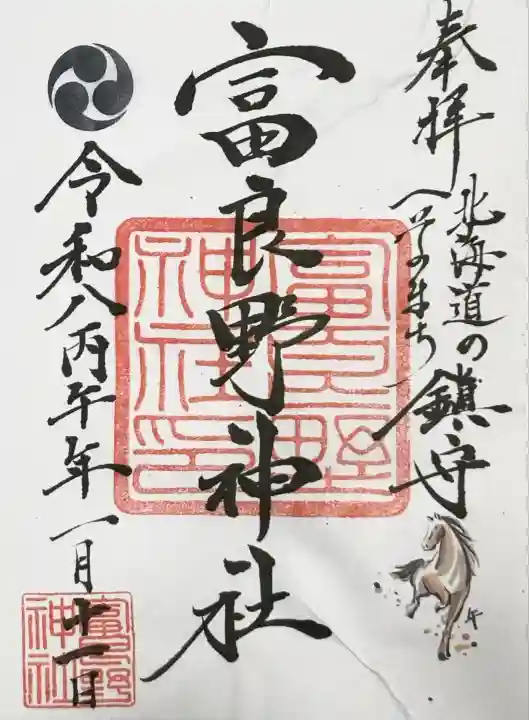 奉拝
北海道の
へそのまち
鎮守
午
富良野神社
富良野神社印
令和八丙午年一月十一日
富良野神社